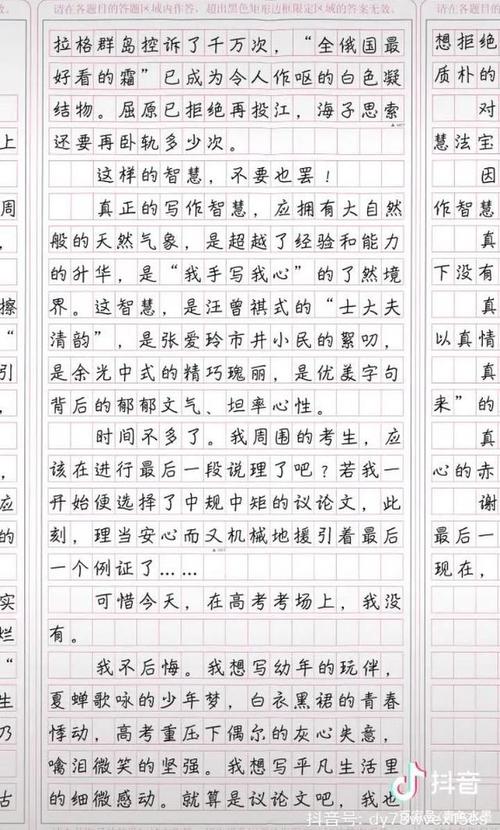 请在各题目的答题区域内作答，超出黑色矩形边框限定区域的答案无效。
拉格群岛控诉了千万次，“全俄国最
好看的霜”已成为令人作呕的白色凝
结物。屈原已拒绝再投江，海子思索
还要再卧轨多少次。
这样的智慧，不要也罢！
真正的写作智慧，应拥有大自然
般的天然气象，是超越了经验和能力
的升华，是“我手写我心”的了然境
界。这智慧，是汪曾祺式的“士大夫
清韵”，是张爱玲市井小民的絮叨，
是余光中式的精巧瑰丽，是优美字句
背后的郁郁文气、坦率心性。
时间不多了。我周围的考生，应
该在进行最后一段说理了吧？若我一
开始便选择了中规中矩的议论文，此
刻，理当安心而又机械地援引着最后
一个例证了……
可惜今天，在高考考场上，我没
有。
我不后悔。我想写幼年的玩伴，
夏蝉歌咏的少年梦，白衣黑裙的青春
悸动，高考重压下偶尔的灰心失意，
噙泪微笑的坚强。我想写平凡生活里
的细微感动。就算是议论文吧，我也
上
周
擦
“
引
应
的
实
烂
“
生
乃
古
请在各题目的答
想拒绝
质朴的
对
慧法宝
因
作智慧
真
下没有
真
以真情
来”的
真
心的赤
谢
最后一
现在，
抖音